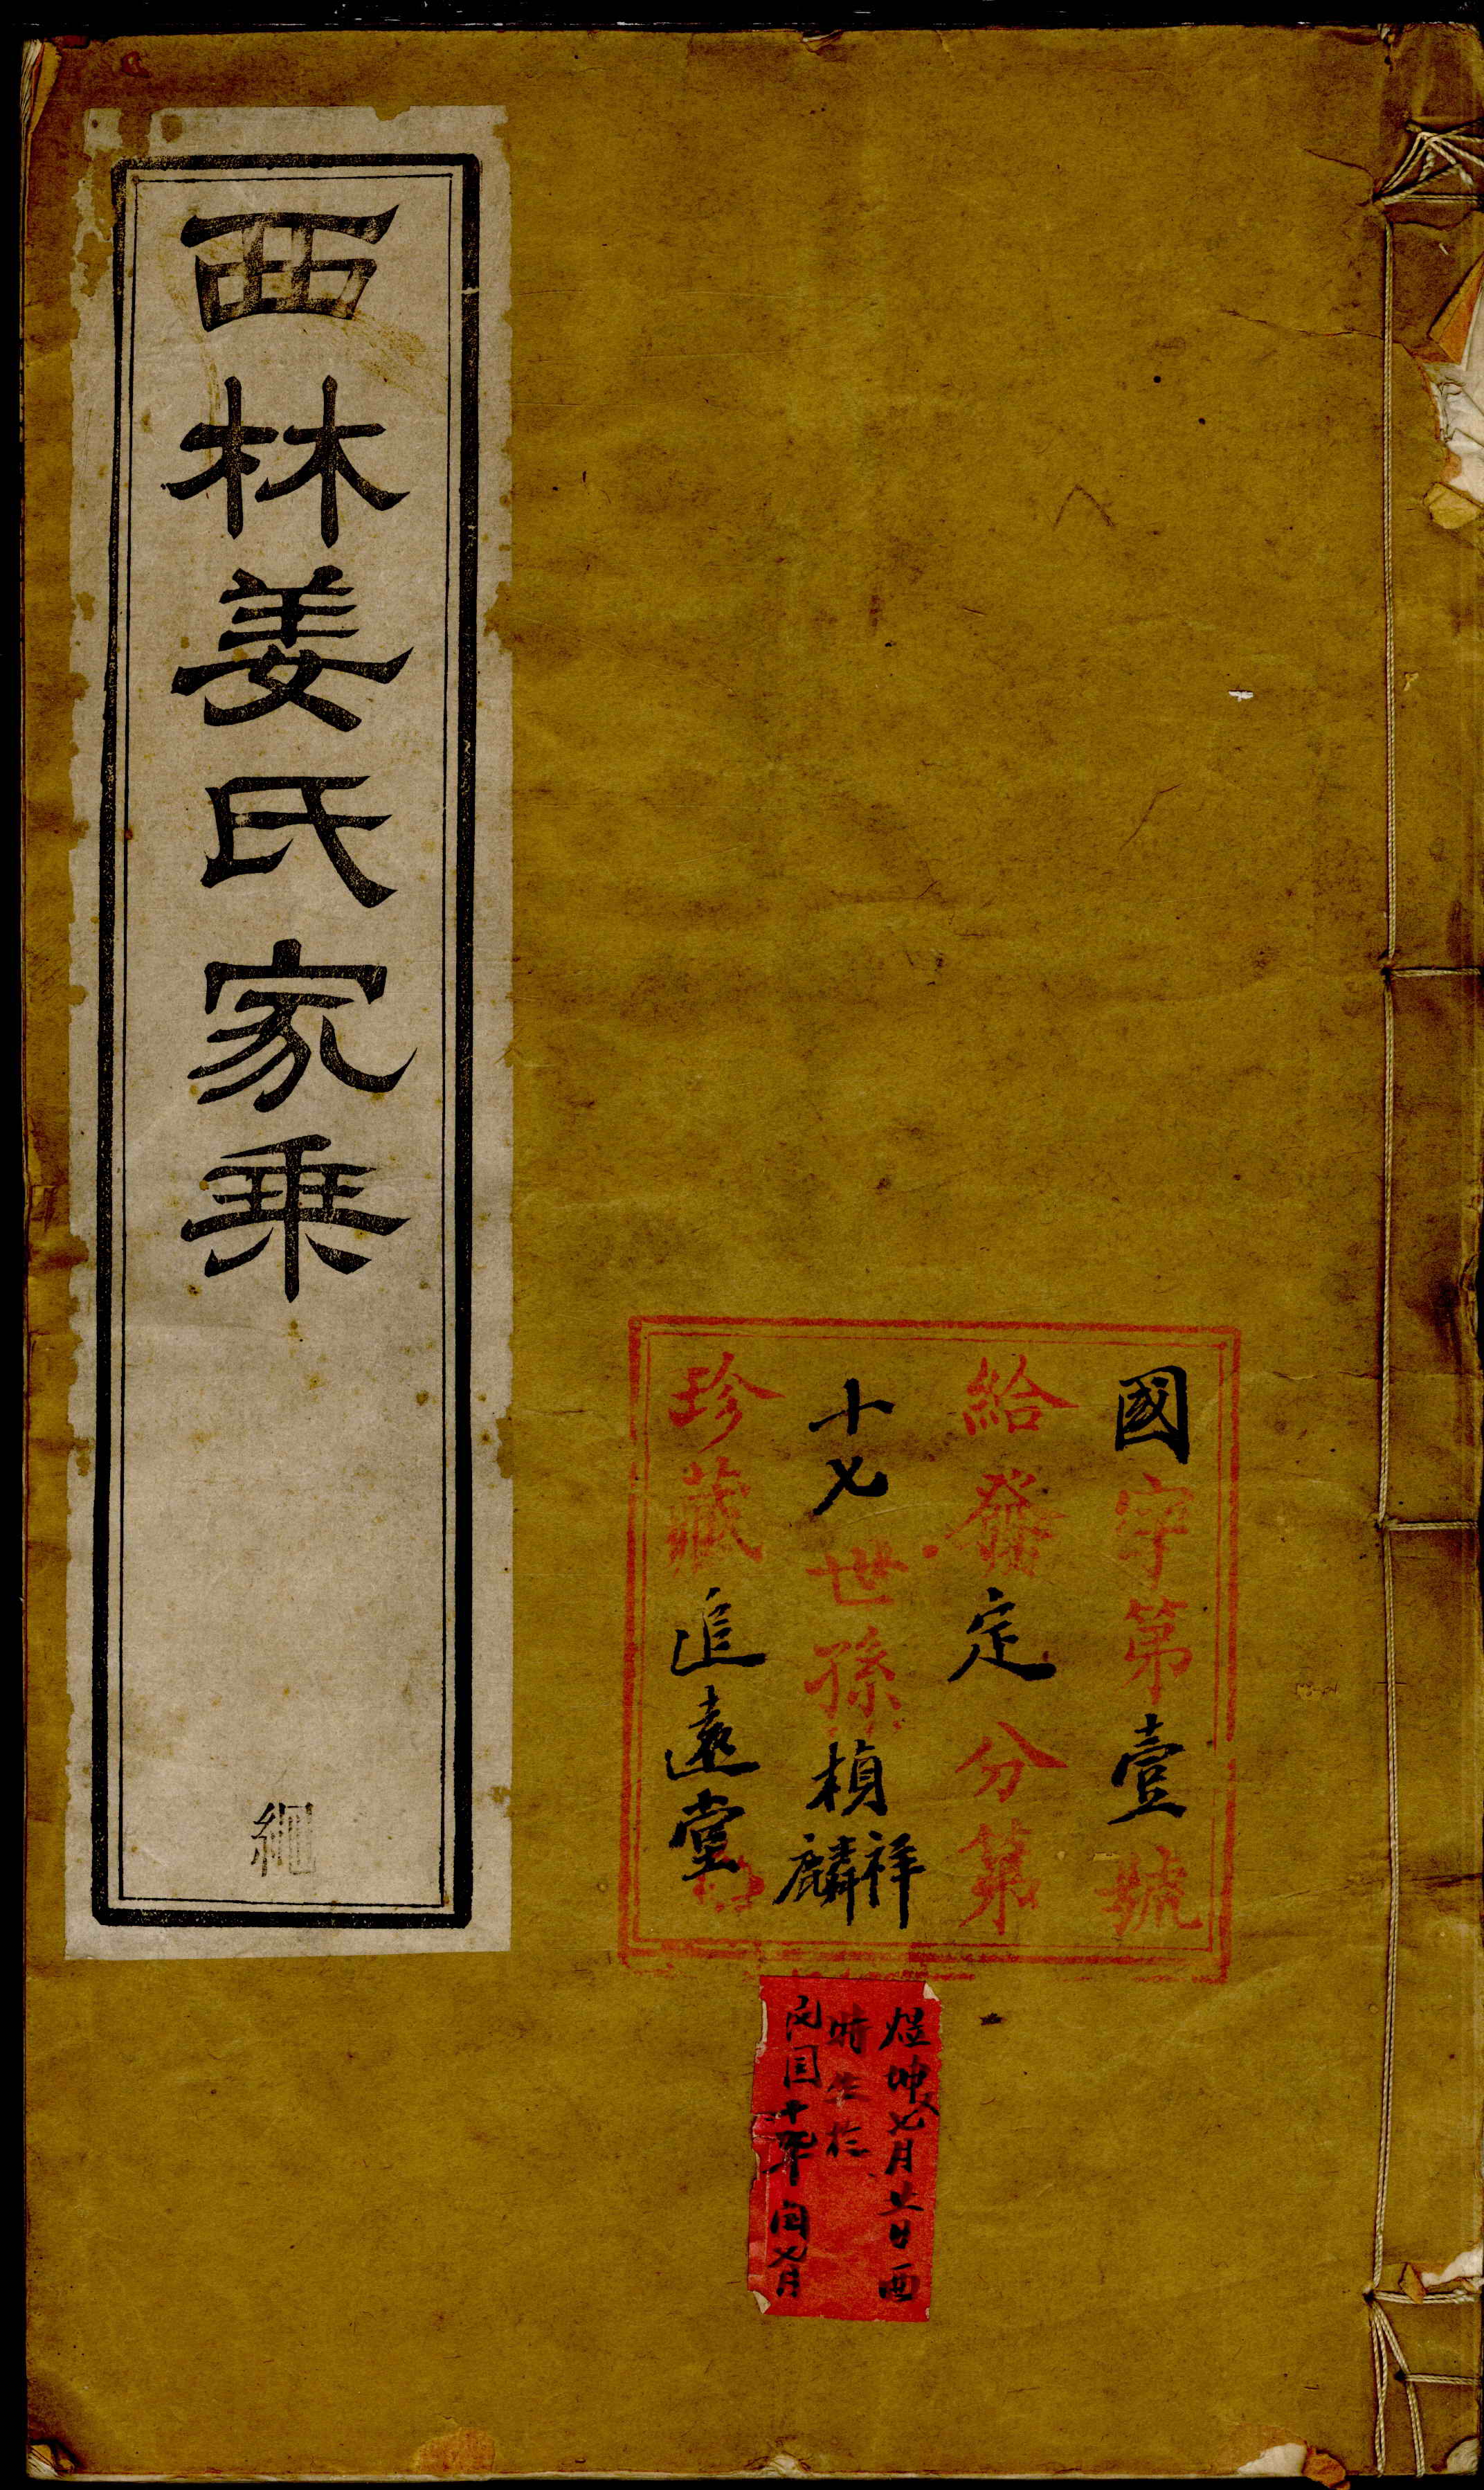 西林姜氏家乘
繩
國字第壹號
給發定分第
十七世孫楨祥麟
珍藏追遠堂
煜坤七月廿日酉
時生於
民國十年閏七月